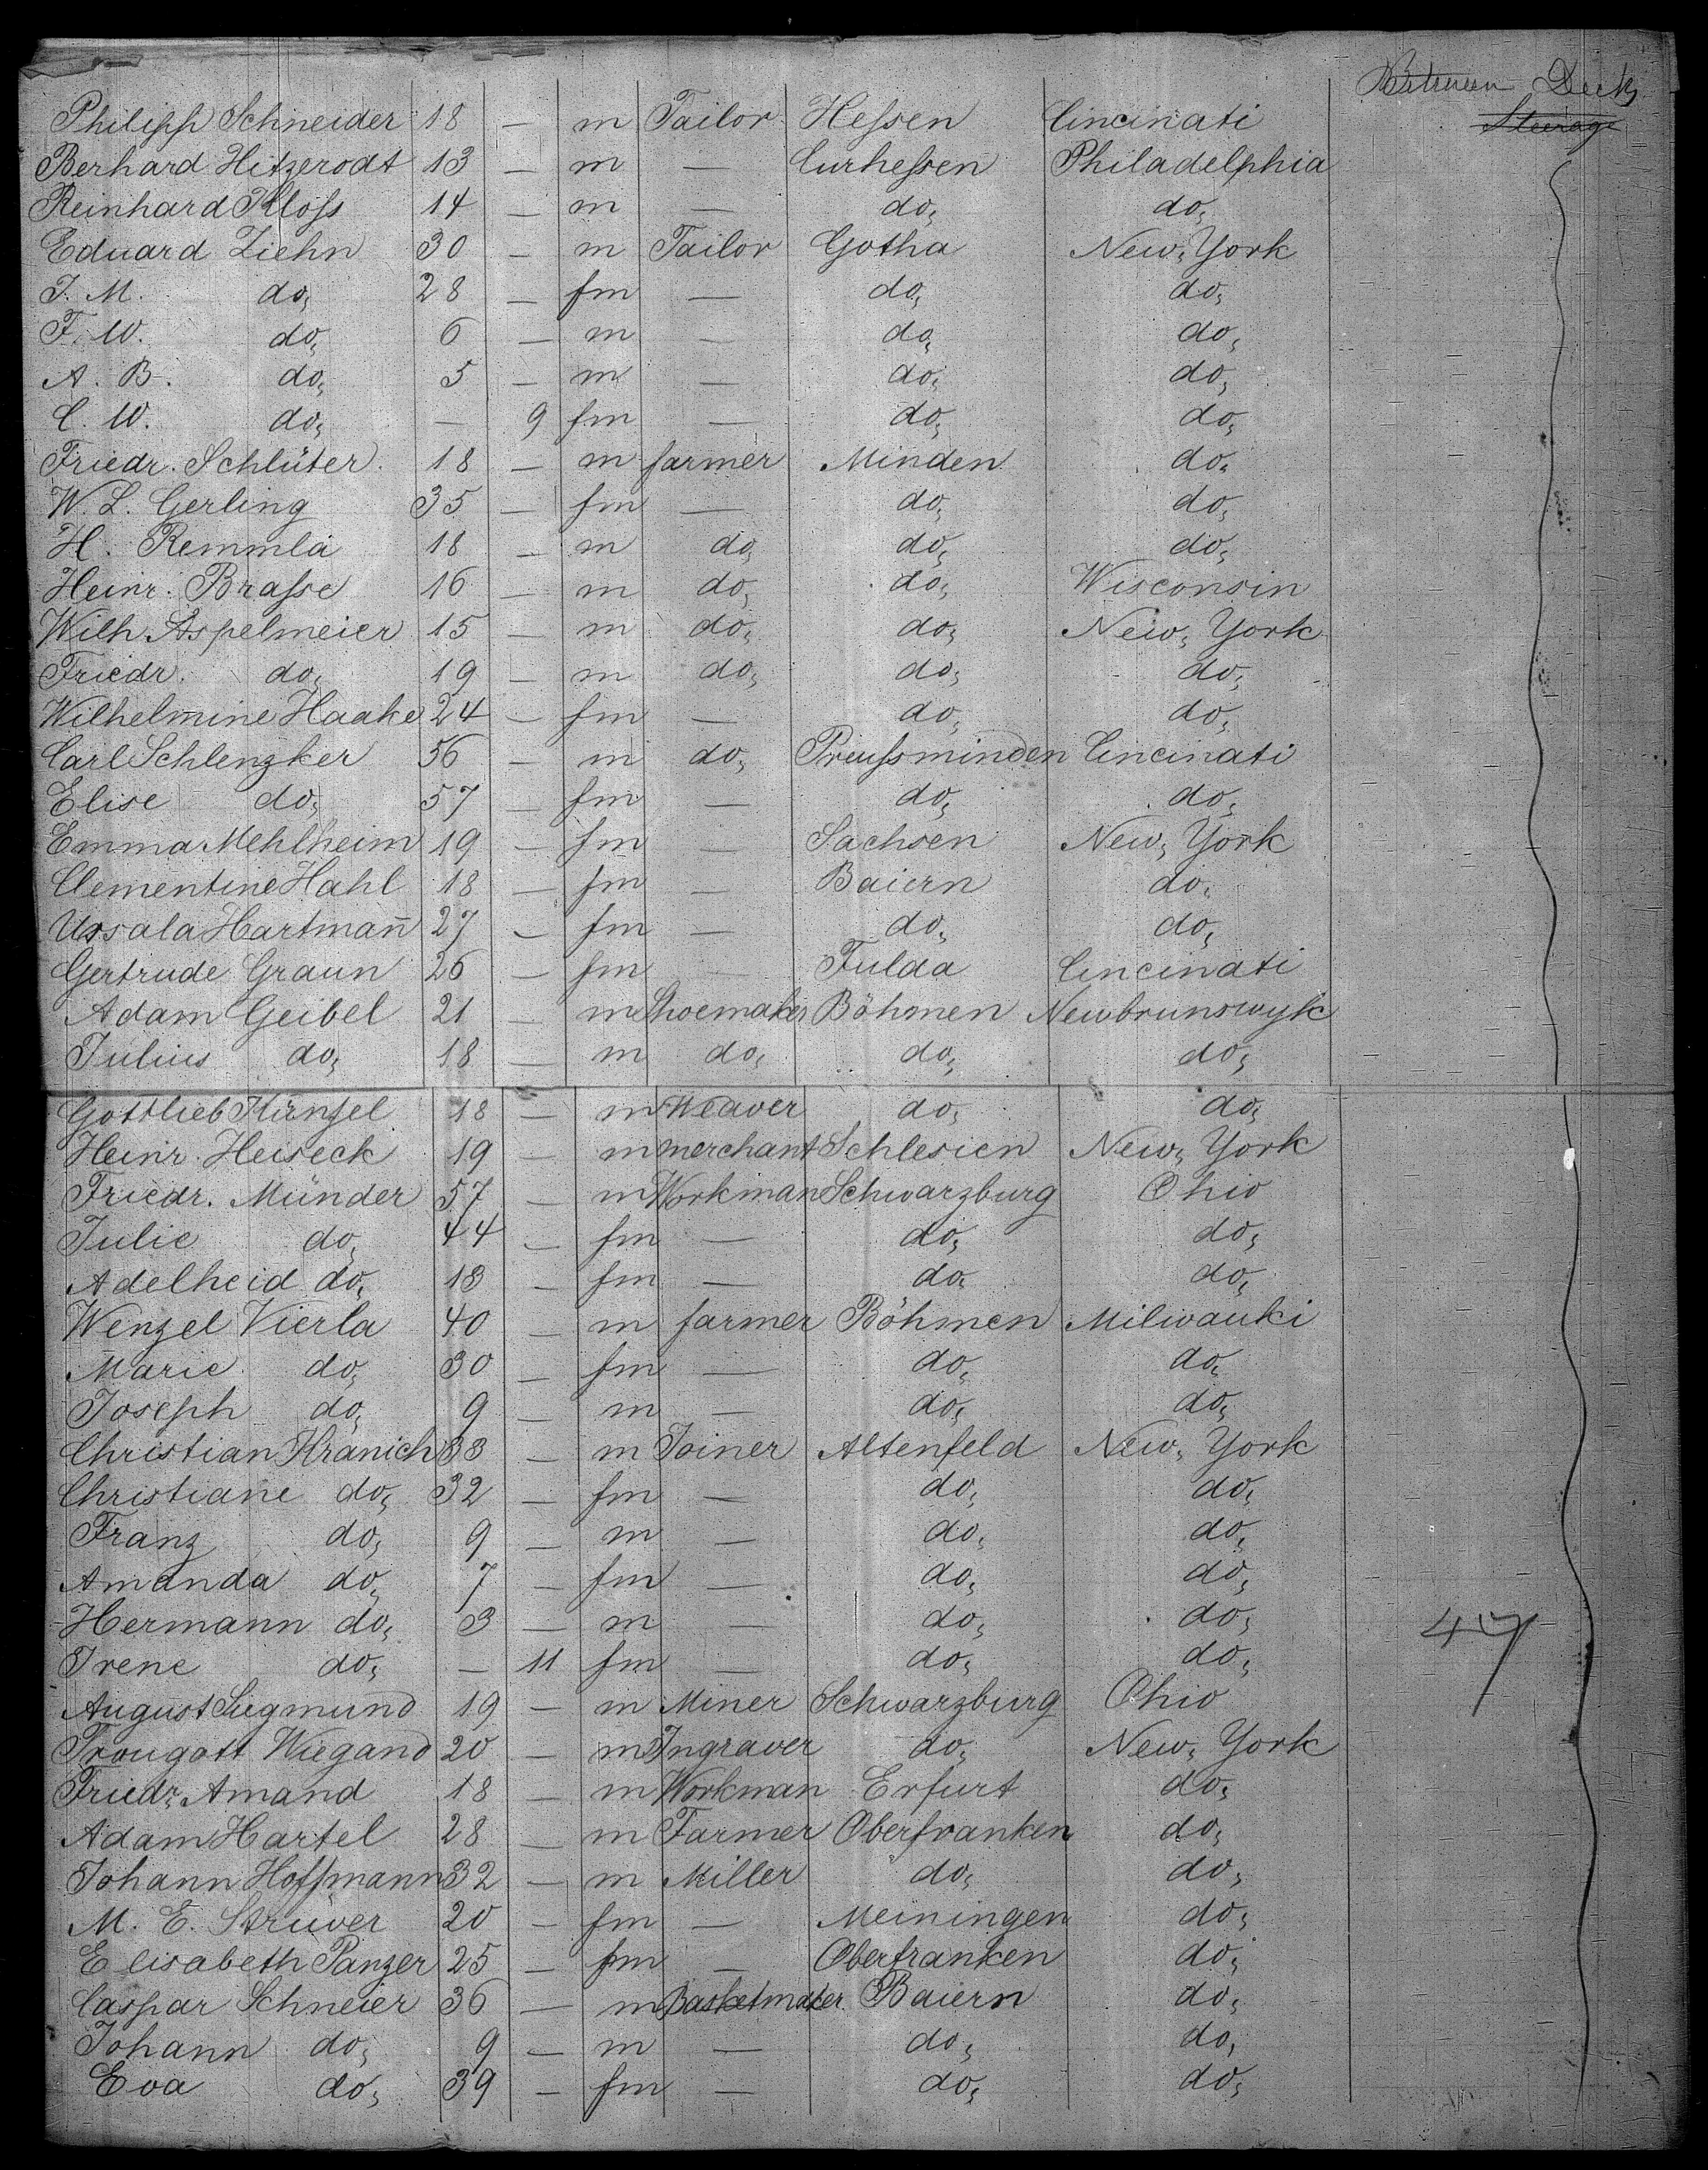 Between Deck
Steerage
Philipp Schneider 18 — m Tailor Hessen Cincinati
Berhard Hitzerodt 13 — m — Curhessen Philadelphia
Reinhard Kloss 14 — m — do, do,
Eduard Ziehn 30 — m Tailor Gotha New, York
J. M. do, 28 — fm — do, do,
F. W. do, 6 — m — do, do,
A. B. do, 5 — m — do, do,
C. W. do, — 9 fm — do, do,
Friedr. Schlüter. 18 — m farmer Minden do,
W. L. Gerling 35 — fm — do, do,
H. Remmla 18 — m do, do, do,
Heinr. Brasse 16 — m do, do, Wisconsin
Wilh Aspelmeier 15 — m do, do, New, York
Friedr. do, 19 — m do, do, do,
Wilhelmine Haake 24 — fm — do, do,
Carl Schlenzker 56 — m do, Preussminden Cincinati
Elise do, 57 — fm — do, do,
Emma Mehlheim 19 — fm — Sachsen New, York
Clementine Hahl 18 — fm — Baiern do,
Ursala Hartman̅ 27 — fm — do, do,
Gertrude Graun 26 — fm — Fulda Cincinati
Adam Geibel 21 — m Shoemaker Böhmen Newbrunswyk
Julius do, 18 — m do, do, do,
Gottlieb Künzel 18 — m Weaver do, do,
Heinr. Heiseck 19 — m merchant Schlesien New, York
Friedr. Münder 57 — m Workman Schwarzburg Ohio
Julie do, 44 — fm — do, do,
Adelheid do, 18 — fm — do, do,
Wenzel Vierla 40 — m farmer Böhmen Milwauki
Marie do, 30 — fm — do, do,
Joseph do, 9 — m — do, do,
Christian Kranich 33 — m Joiner Altenfeld New, York
Christiane do, 32 — fm — do, do,
Franz do, 9 — m — do, do,
Amanda do, 7 — fm — do, do,
Hermann do, 3 — m — do, do,
47
Irene do, — 11 fm — do, do,
August Siegmund 19 — m Miner Schwarzburg Ohio
Trougott Wiegand 20 — m Ingraver do, New, York
Friedr, Amand 18 — m Workman Erfurt do,
Adam Hartel 28 — m Farmer Oberfranken do,
Johann Hoffmann 32 — m Miller do, do,
M. E. Strüver 20 — fm — Meiningen do,
Elisabeth Panzer 25 — fm — Oberfranken do,
Caspar Schneier 36 — m Basketmaker Baiern do,
Johann do, 9 — m — do, do,
Eva do, 39 — fm — do, do,